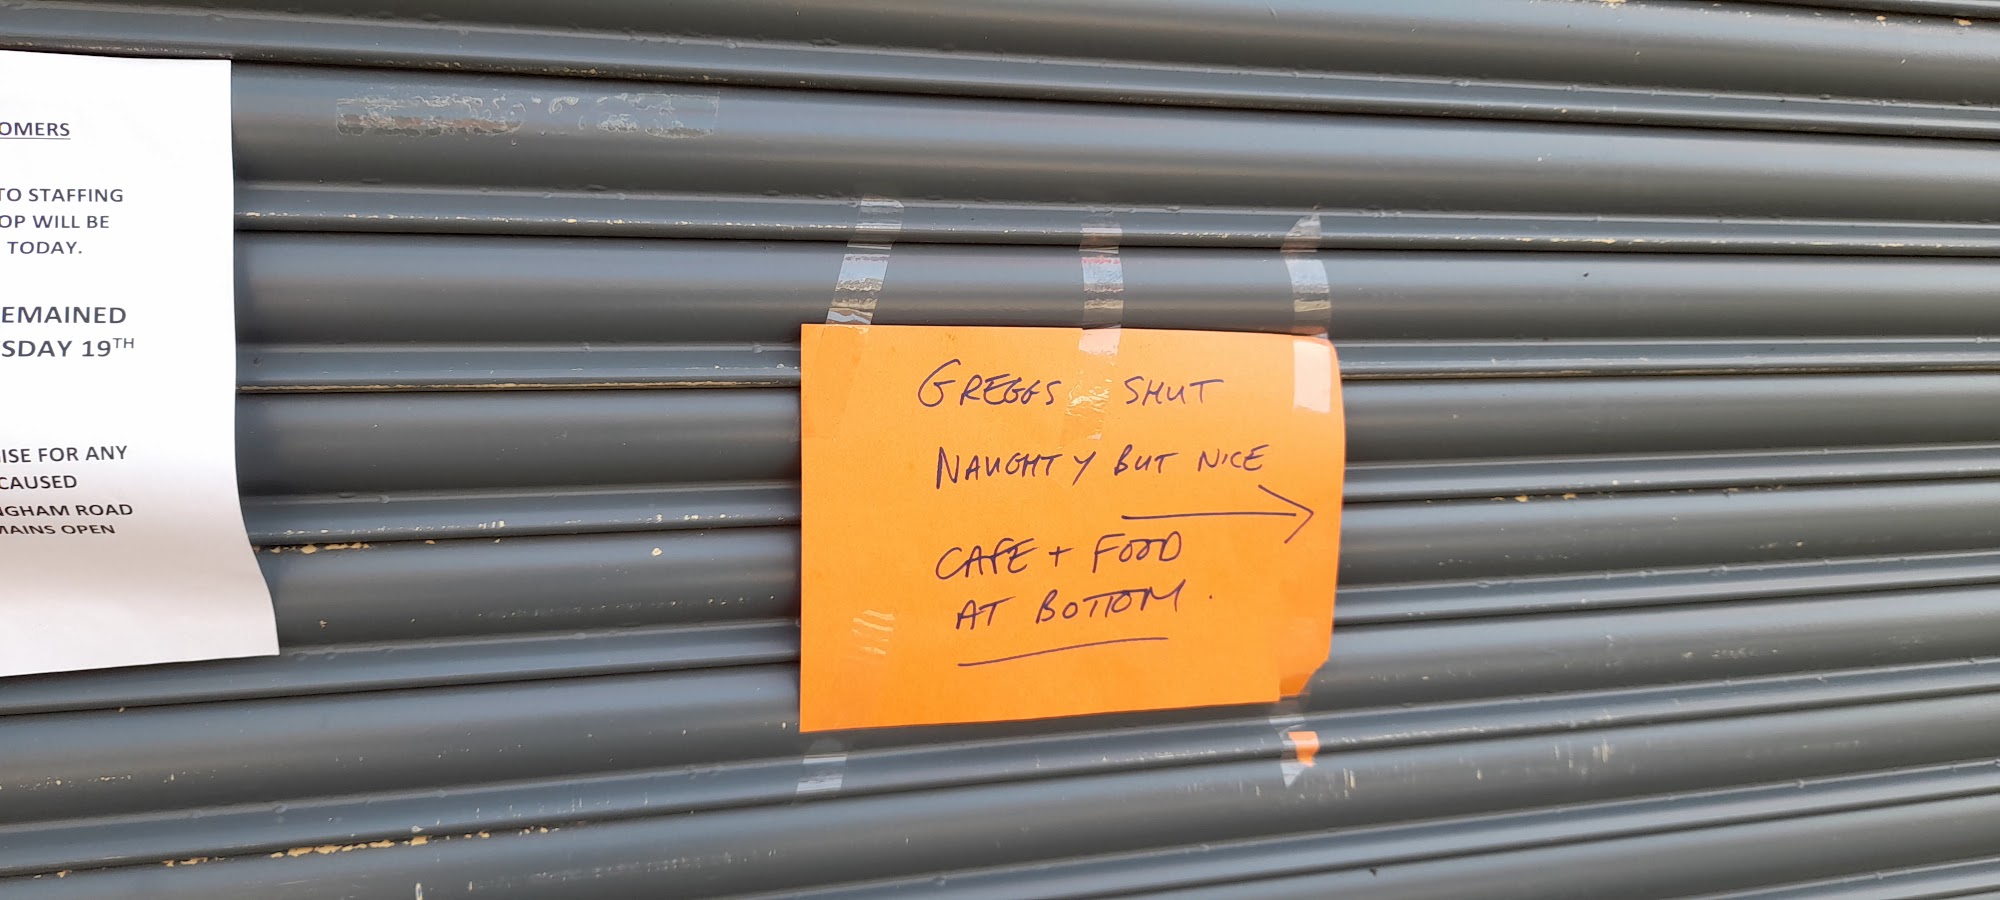 OMERS
TO STAFFING
OP WILL BE
TODAY.
EMAINED
SDAY 19TH
ISE FOR ANY
CAUSED
NGHAM ROAD
MAINS OPEN
GREGGS SHUT
NAUGHTY BUT NICE
CAFE + FOOD
AT BOTTOM.